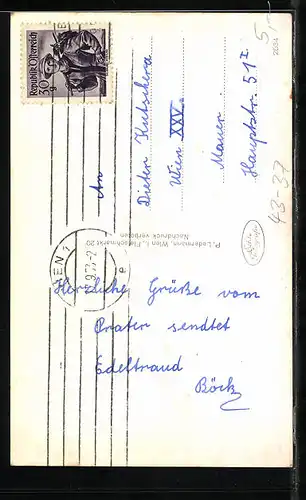 Republik Österreich
30 g
WIEN 1
An
Dieter Kutschera
Wien XXV.
Mauer
Hauptstr. 51
P. Ledermann, Wien I., Fleischmarkt 20
Nachdruck verboten
Herzliche Grüße vom
Prater sendtet
Edeltraud
Böck
5,-
43-37